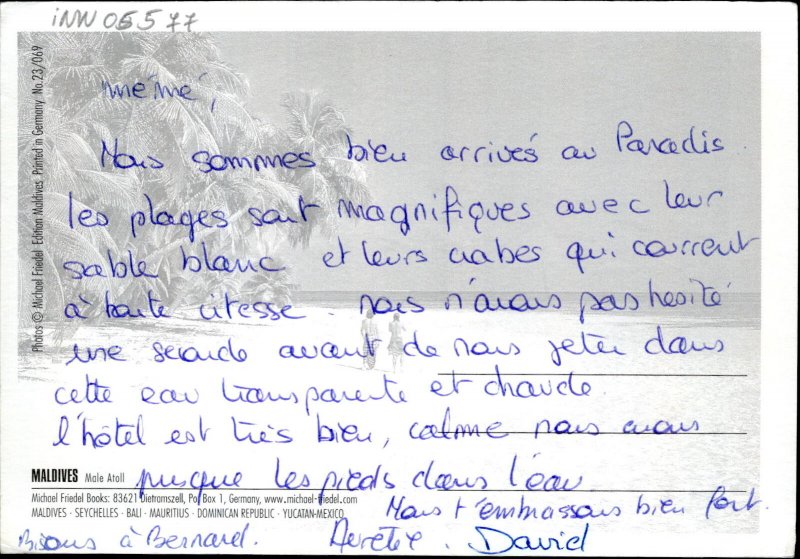 iNW 05577
mémé,
Nous sommes bien arrivés au Paradis.
les plages sont magnifiques avec leur
sable blanc et leurs crabes qui courrent
à haute vitesse. nous n'avons pas hesité
une seconde avant de nous jeter dans
cette eau transparente et chaude.
l'hôtel est très bien, calme nous avons
presque les pieds dans l'eau
Nous t'embrassons bien fort.
Bisous à Bernard. Aurélie. David
MALDIVES Male Atoll
Michael Friedel Books: 83621 Dietramszell, Po Box 1, Germany, www.michael-friedel.com
MALDIVES · SEYCHELLES · BALI · MAURITIUS · DOMINICAN REPUBLIC · YUCATAN-MEXICO
Photos © Michael Friedel Edition Maldives Printed in Germany No.23/069